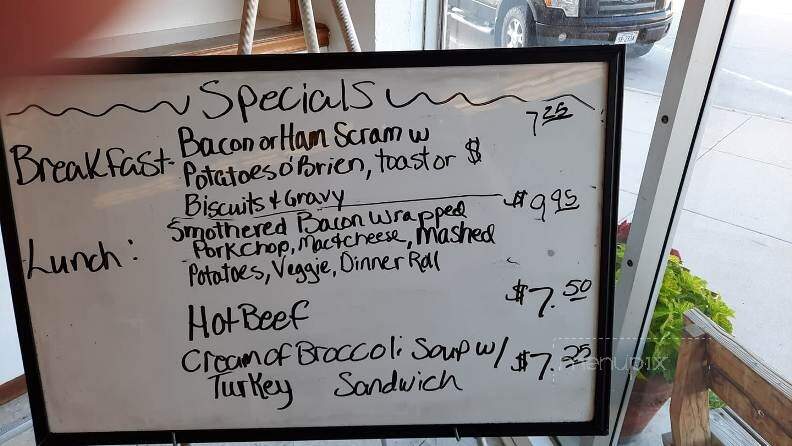 Specials
Breakfast- Bacon or Ham Scram w 7 25
Potatoes o'Brien, toast or $
Biscuits & Gravy
Lunch: Smothered Bacon Wrapped $9 95
Porkchop, Mac & cheese, Mashed
Potatoes, Veggie, Dinner Roll
Hot Beef $7.50
Cream of Broccoli Soup w/ $7.25
Turkey Sandwich
menupix